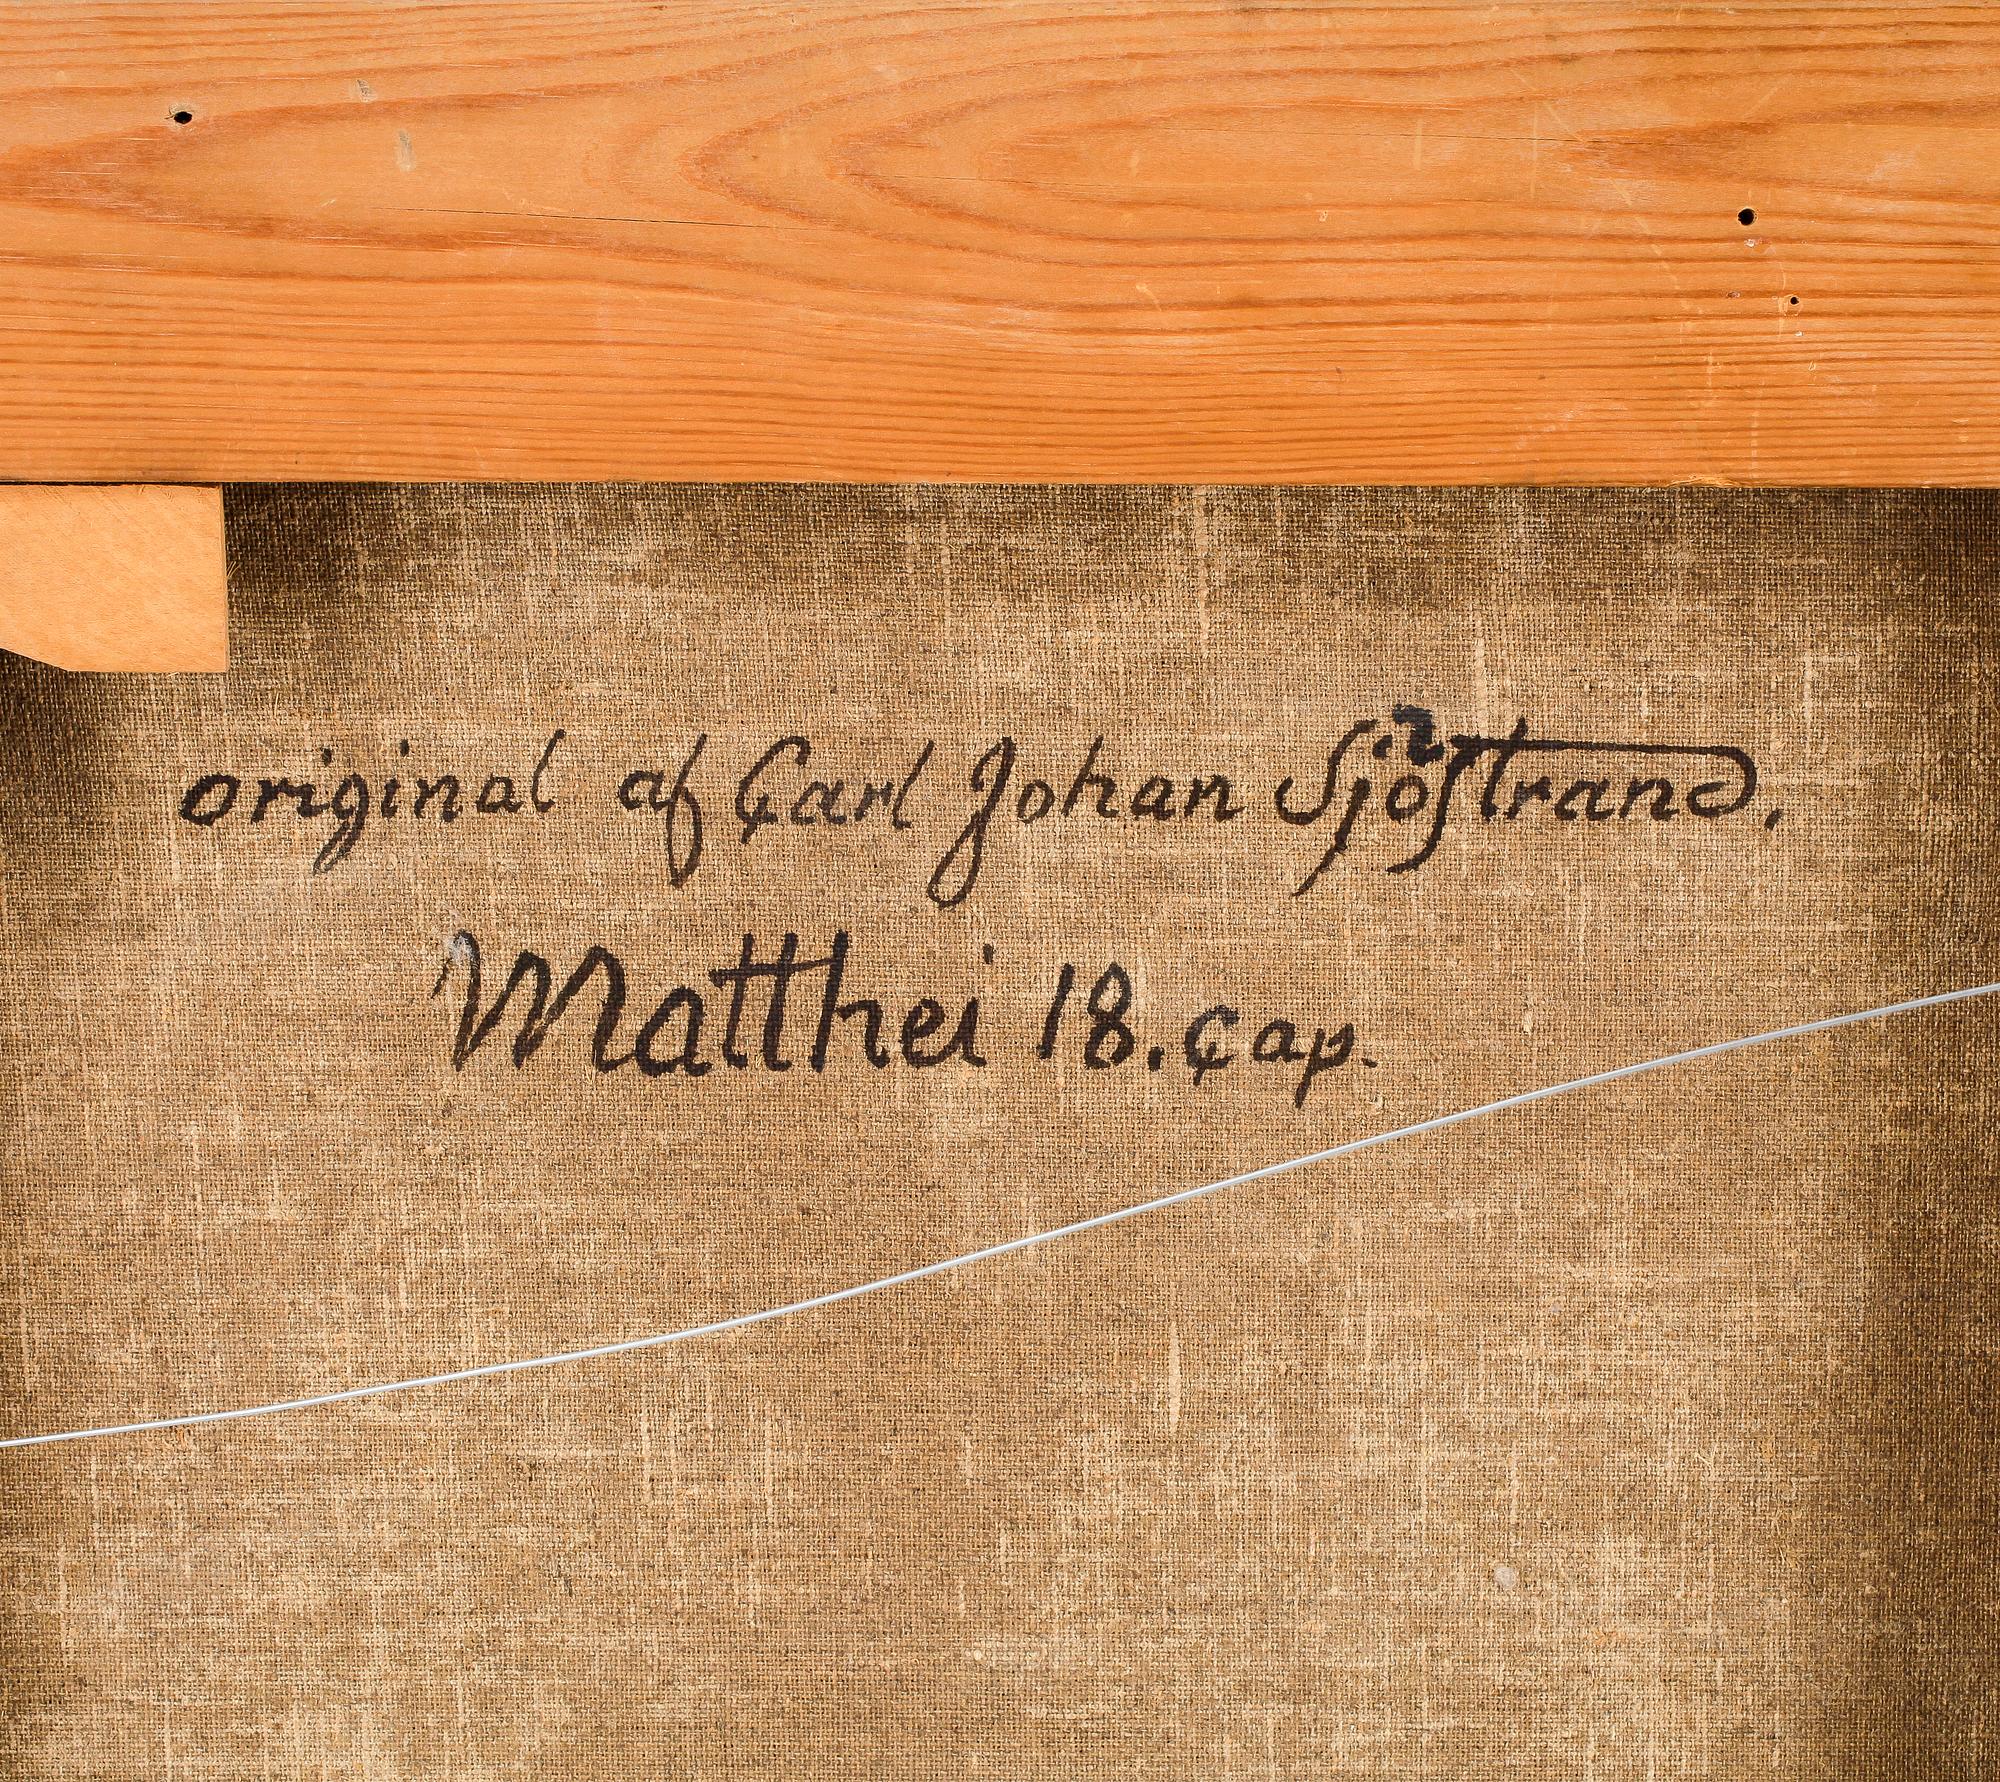 original af Carl Johan Sjöstrand.
Matthei 18. Cap.